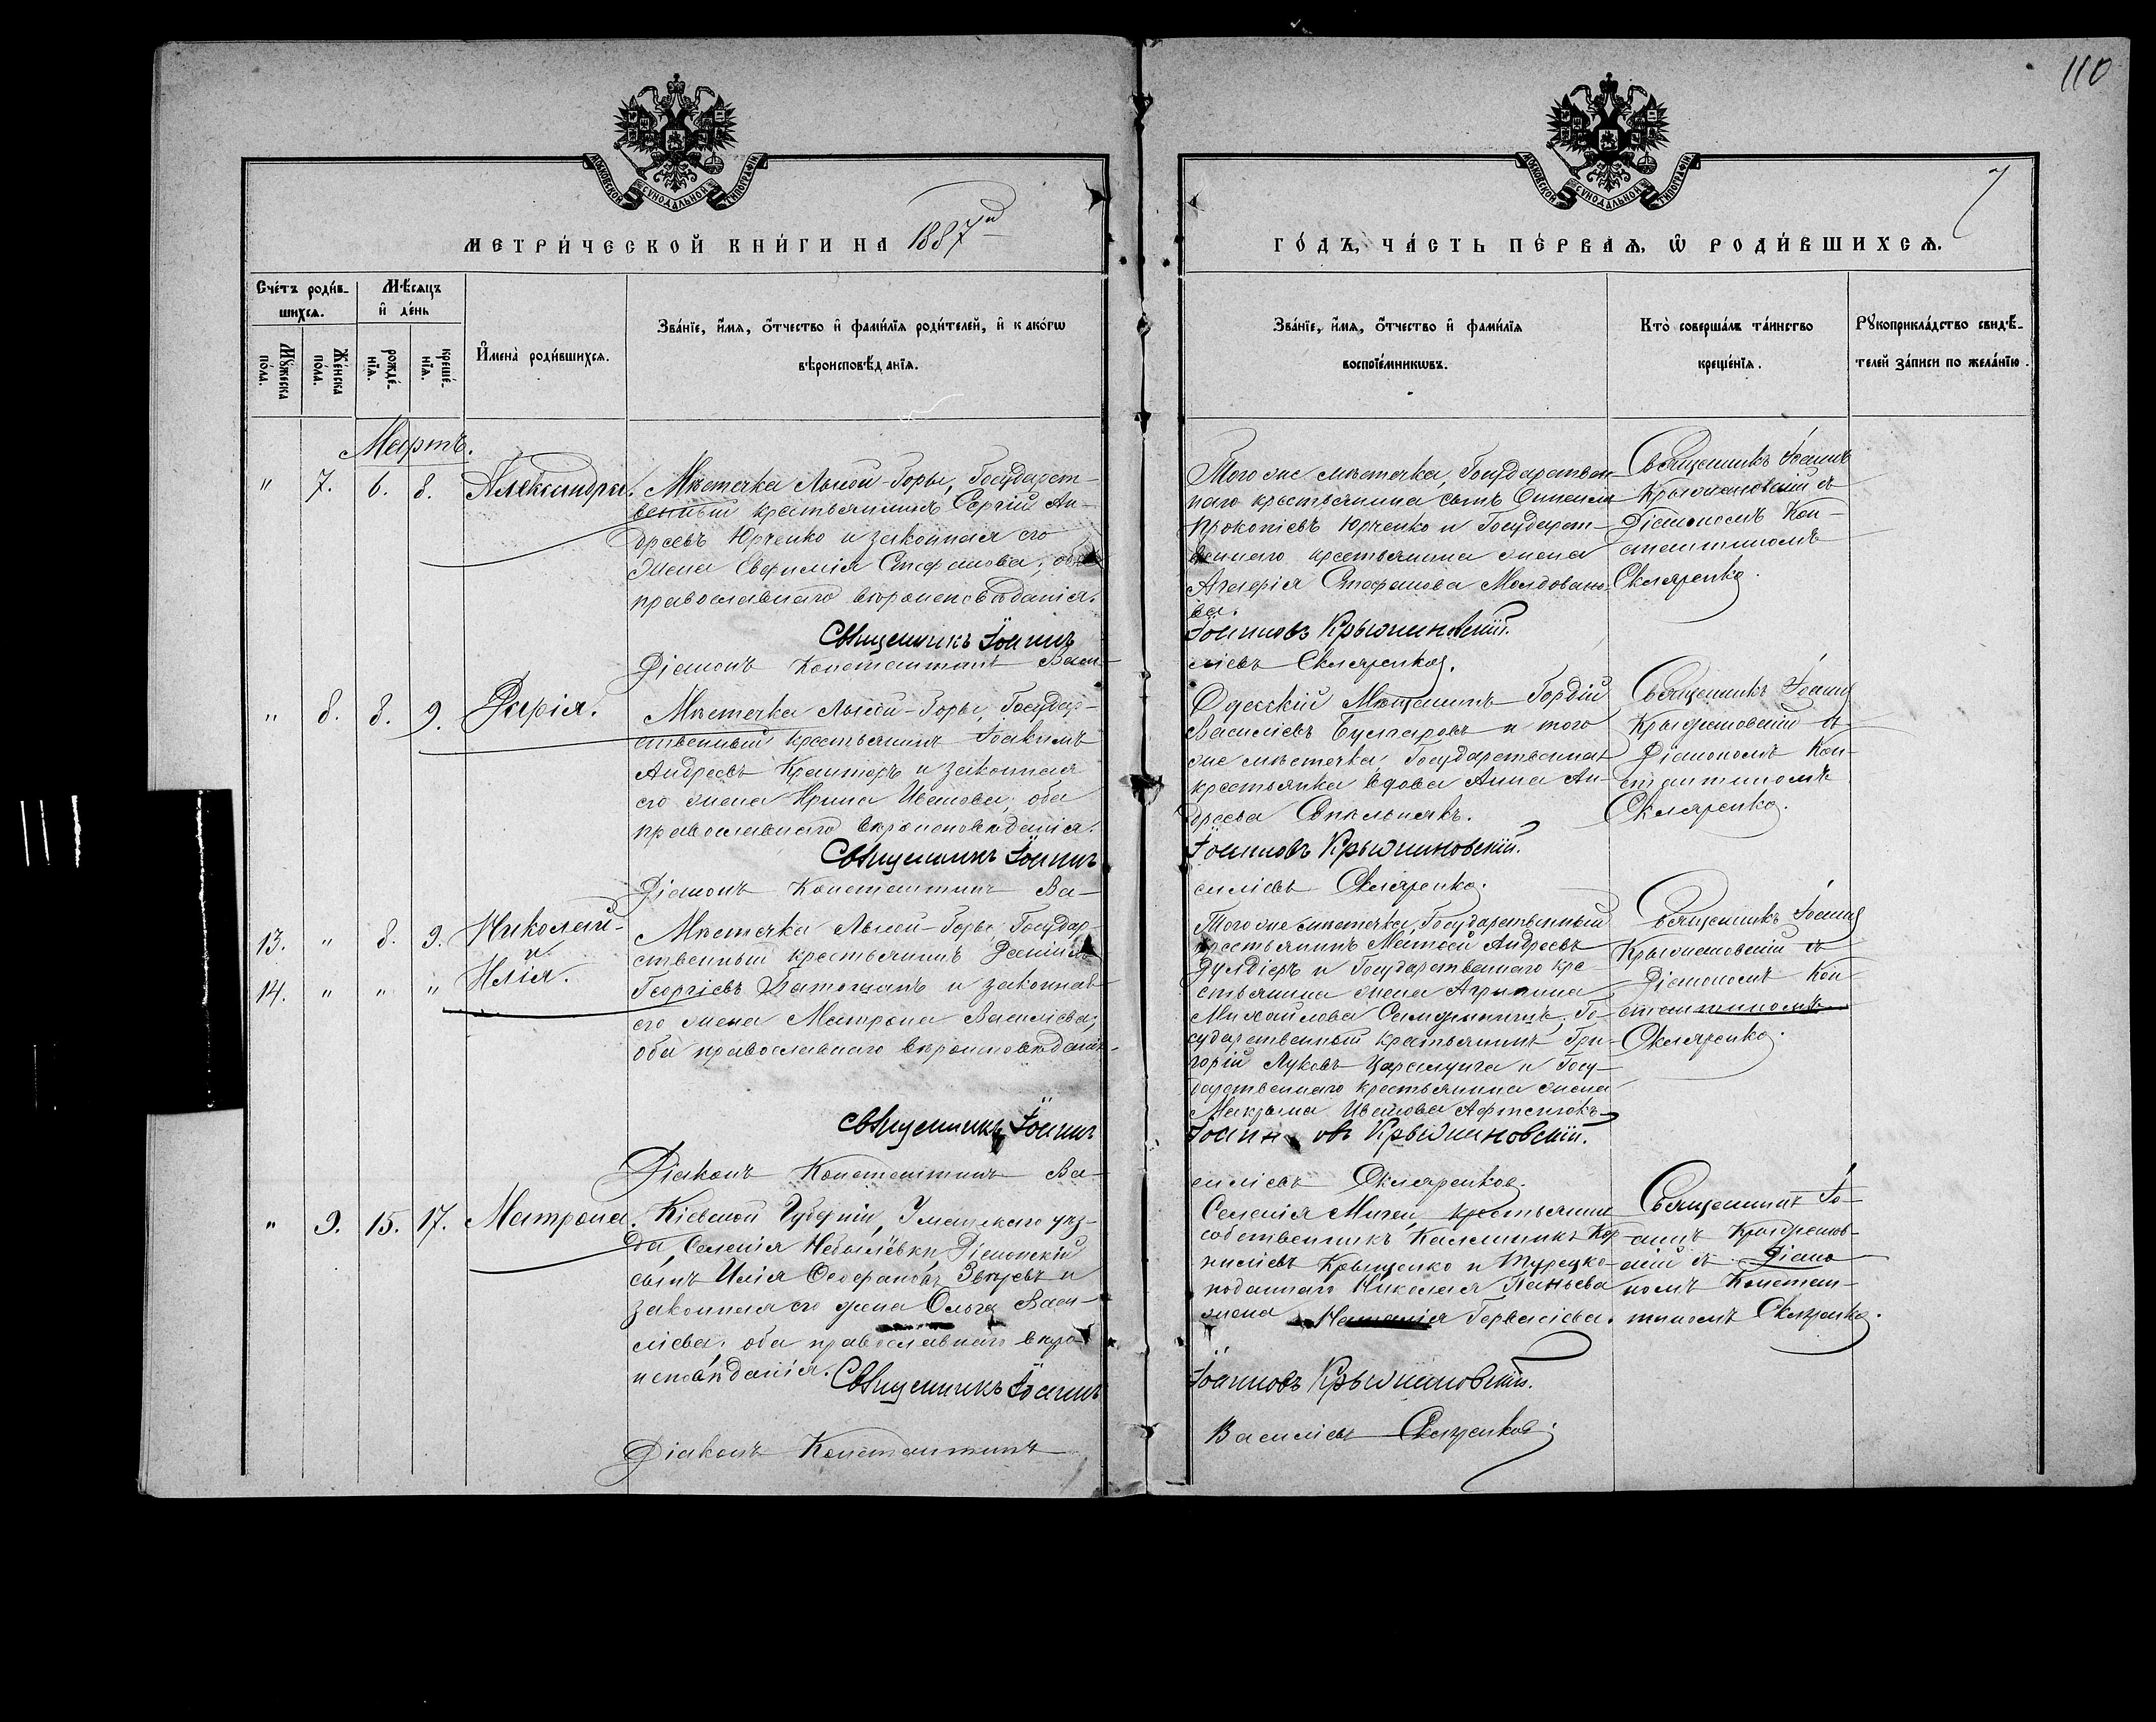 110
МОСКОВСКОЙ СѴНОДАЛЬНОЙ ТИПОГРАФІИ
МОСКОВСКОЙ СѴНОДАЛЬНОЙ ТИПОГРАФІИ
7
МЕТРИ́ЧЕСКОЙ КНИ́ГИ НА 1887й
ГО́ДЪ, ЧА́СТЬ ПЕ́РВАѦ, Ѡ҆ РОДИ́ВШИХСѦ.
Сче́тъ роди́в-
шихсѧ.
Мѣ́сяцъ
и҆ де́нь
Мꙋ́жеска по́ла.
Же́нска по́ла.
рожде́-
нїѧ.
креще́-
нїѧ.
И҆мена̀ роди́вшихсѧ.
Зва́нїе, и҆́мѧ, ѻ҆́тчество и҆ фами́лїѧ роди́телей, и҆ како́гѡ
вѣроисповѣ́данїѧ.
Зва́нїе, и҆́мѧ, ѻ҆́тчество и҆ фами́лїѧ
воспрїе́мникѡвъ.
Кто̀ соверша́лъ та́инство
креще́нїѧ.
Рꙋкоприкла́дство свидѣ́-
телей за́писи по жела́нїю.
Мартъ.
" 7. 6. 8. Александра.
Мѣстечка Лысой-Горы, Государст-
венный крестьянинъ Сергій Ан-
дреевъ Юрченко и законная его
жена Евфимія Стефанова; оба
православнаго вѣроисповѣданія.
Священникъ Іоаннъ
Діаконъ Константинъ Васи-
Того же мѣстечка, Государствен-
наго крестьянина сынъ
Прокопіевъ Юрченко и Государст-
веннаго крестьянина жена
Агафія Стефанова Молдовано-
ва.
Іоанновъ Крыжановскій.
ліевъ Скляренко.
Священникъ Іоаннъ
Крыжановскій съ
Діакономъ Кон-
стантиномъ
Скляренко.
" 8. 8. 9. Дарія.
Мѣстечка Лысой-Горы, Государ-
ственный крестьянинъ Іоакимъ
Андреевъ и законная
его жена Ирина Иванова; оба
православнаго вѣроисповѣданія.
Священникъ Іоаннъ
Діаконъ Константинъ Ва-
Одесскій Мѣщанинъ Гордій
Василіевъ Булгаровъ и того
же мѣстечка, Государственная
крестьянка вдова Анна Ан-
дреева
Іоанновъ Крыжановскій.
силіевъ Скляренко.
Священникъ Іоаннъ
Крыжановскій съ
Діакономъ Кон-
стантиномъ
Скляренко.
13. " 8. 9. Николай
и
14. " " " Илія.
Мѣстечка Лысой-Горы, Государ-
ственный крестьянинъ Даніилъ
Георгіевъ и законная
его жена Матрона Василіева;
оба православнаго вѣроисповѣданія.
Священникъ Іоаннъ
Діаконъ Константинъ Ва-
Того же мѣстечка, Государственный
крестьянинъ Матѳей Андреевъ
и Государственнаго кре-
стьянина жена Агрипина
Михайлова Го-
сударственный крестьянинъ Гри-
горій Луковъ и Госу-
дарственнаго крестьянина жена
Макрина Иванова
Іоанновъ Крыжановскій.
силіевъ Скляренко.
Священникъ Іоаннъ
Крыжановскій съ
Діакономъ Кон-
стантиномъ
Скляренко.
" 9. 15. 17. Матрона.
Кіевской Губерніи, Уманскаго уѣз-
да, Селенія Небелевки, Діаконскій
сынъ Илія Ѳеофановъ и
законная его жена Ольга Васи-
ліева; оба православнаго вѣро-
исповѣданія.
Священникъ Іоаннъ
Діаконъ Константинъ
Селенія Мигеи, крестьянинъ
собственникъ Калинникъ Кор-
ниліевъ Крыщенко и Турецко-
подданнаго Николая
жена Наталія Гервасіева.
Іоанновъ Крыжановскій.
Василіевъ Скляренко.
Священникъ Іо-
аннъ Крыжанов-
скій съ Діако
номъ Констан-
тиномъ Скляренко.